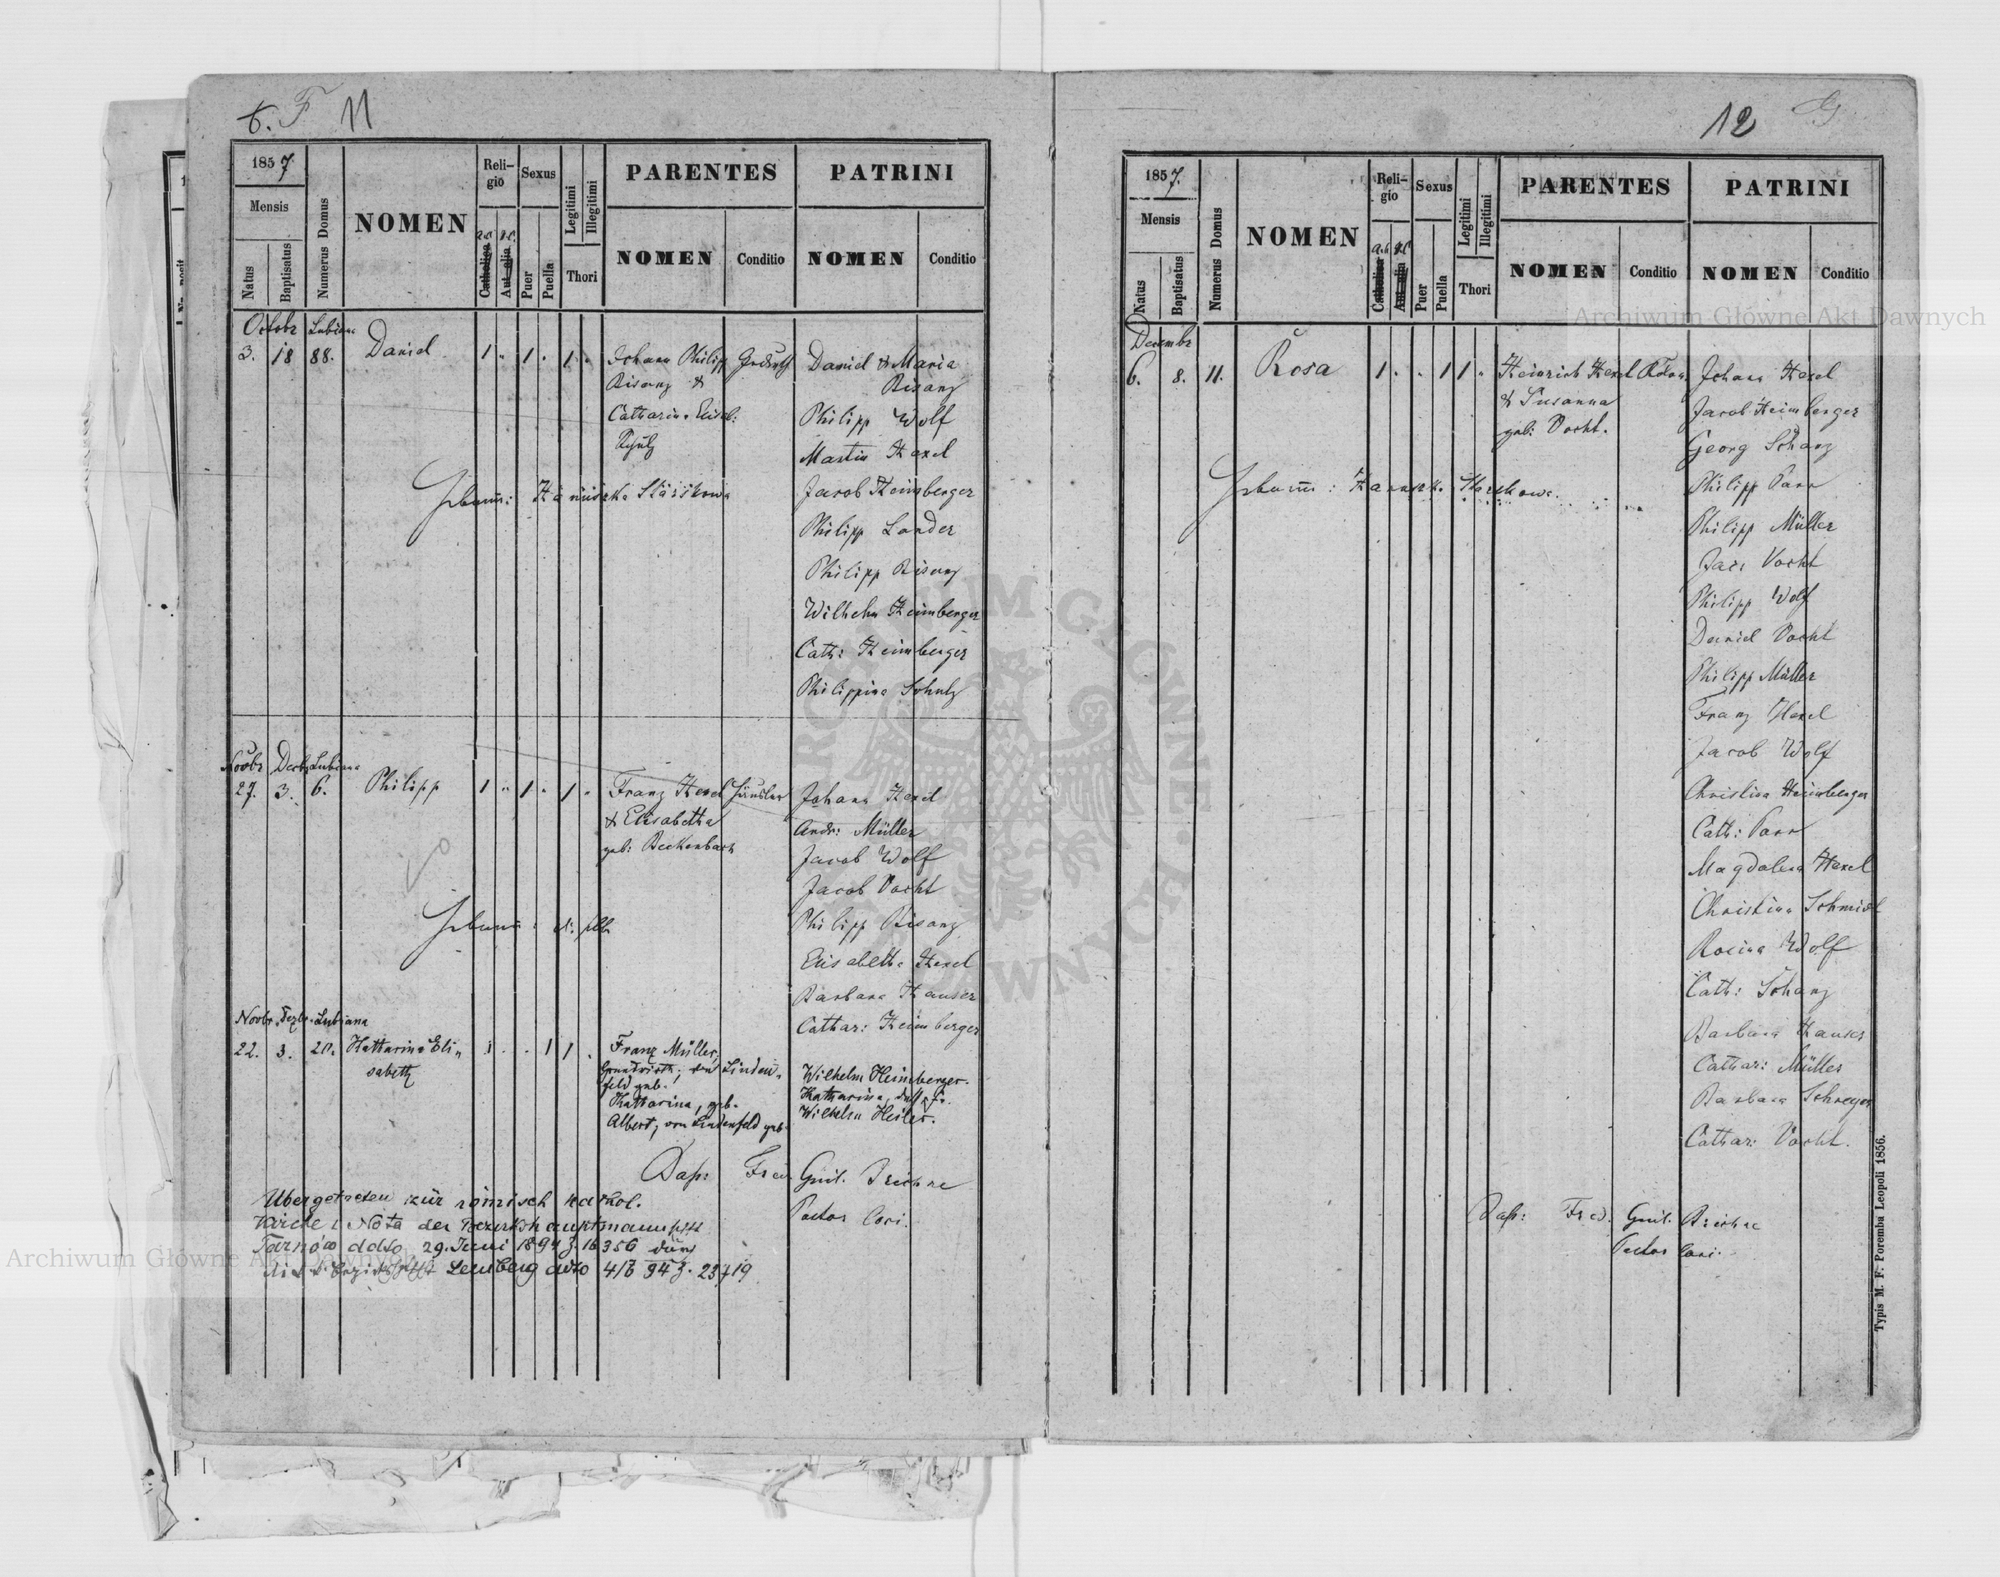 6. F 11
1857
Mensis
Natus
Baptisatus
Numerus Domus
NOMEN
Reli-
gio
a.c. h.c.
Catholica
Aut alia
Sexus
Puer
Puella
Legitimi
Illegitimi
Thori
PARENTES
NOMEN
Conditio
PATRINI
NOMEN
Conditio
Octobr Lubiana
3. 18 88. Daniel 1 " 1 " 1 "
Johann Philipp
Bisanz &
Catharina Elisab:
Schulz
Daniel & Maria
Bisanz
Philipp Wolf
Martin Hexel
Jacob Heimberger
Philipp Lander
Philipp Bisanz
Wilhelm Heimberger
Cath: Heimberger
Philippina Schulz
Hebamme:
Novbr Decbr Lubiana
27. 3. 6. Philipp 1 " 1 " 1 "
Franz Hexel Häusler
& Elisabetha
geb: Beckenbach
Johann Hexel
Andr: Müller
Jacob Wolf
Jacob Vocht
Philipp Bisanz
Elisabetha Hexel
Barbara Hauser
Cathar: Heimberger
Hebamme: d. selbe
Novbr. Dezbr. Lubiana
22. 3. 20. Katharina Eli-
sabeth
1 " " 1 1 "
Franz Müller,
Grundwirth, von Linden-
feld geb.
Katharina, geb.
Albert, von Lindenfeld geb.
Wilhelm Heimberger.
Katharina, dess. Fr.
Wilhelm Heiler.
Dass: Fred. Guil.
Pastor loci.
Übergetreten zur römisch kathol.
Kirche: Nota der Bezirkshauptmannschft
Tarnów ddto 29. Juni 1894 Z. 16356 durch
Lemberg ddto 4/8 94 Z. 23719
12 G
1857.
Mensis
Natus
Baptisatus
Numerus Domus
NOMEN
Reli-
gio
a.c. h.c.
Catholica
Aut alia
Sexus
Puer
Puella
Legitimi
Illegitimi
Thori
PARENTES
NOMEN
Conditio
PATRINI
NOMEN
Conditio
Decembr
6. 8. 11. Rosa 1 " " 1 1 "
Heinrich Hexel
& Susanna
geb: Vocht.
Johann Hexel
Jacob Heimberger
Georg Schanz
Philipp Parr
Philipp Müller
Jac: Vocht
Philipp Wolf
Daniel Vocht
Philipp Müller
Franz Hexel
Jacob Wolf
Christina Heimberger
Cath: Parr
Magdalena Hexel
Christina Schmidt
Rosina Wolf
Cath: Schanz
Barbara Hauser
Cathar: Müller
Barbara Schreyer
Cathar: Vocht.
Hebamme:
Dass: Fred. Guil.
Pastor loci.
Typis M. F. Poremba Leopoli 1856.
Archiwum Główne Akt Dawnych
Archiwum Główne Akt Dawnych
ARCHIWUM GŁÓWNE AKT DAWNYCH